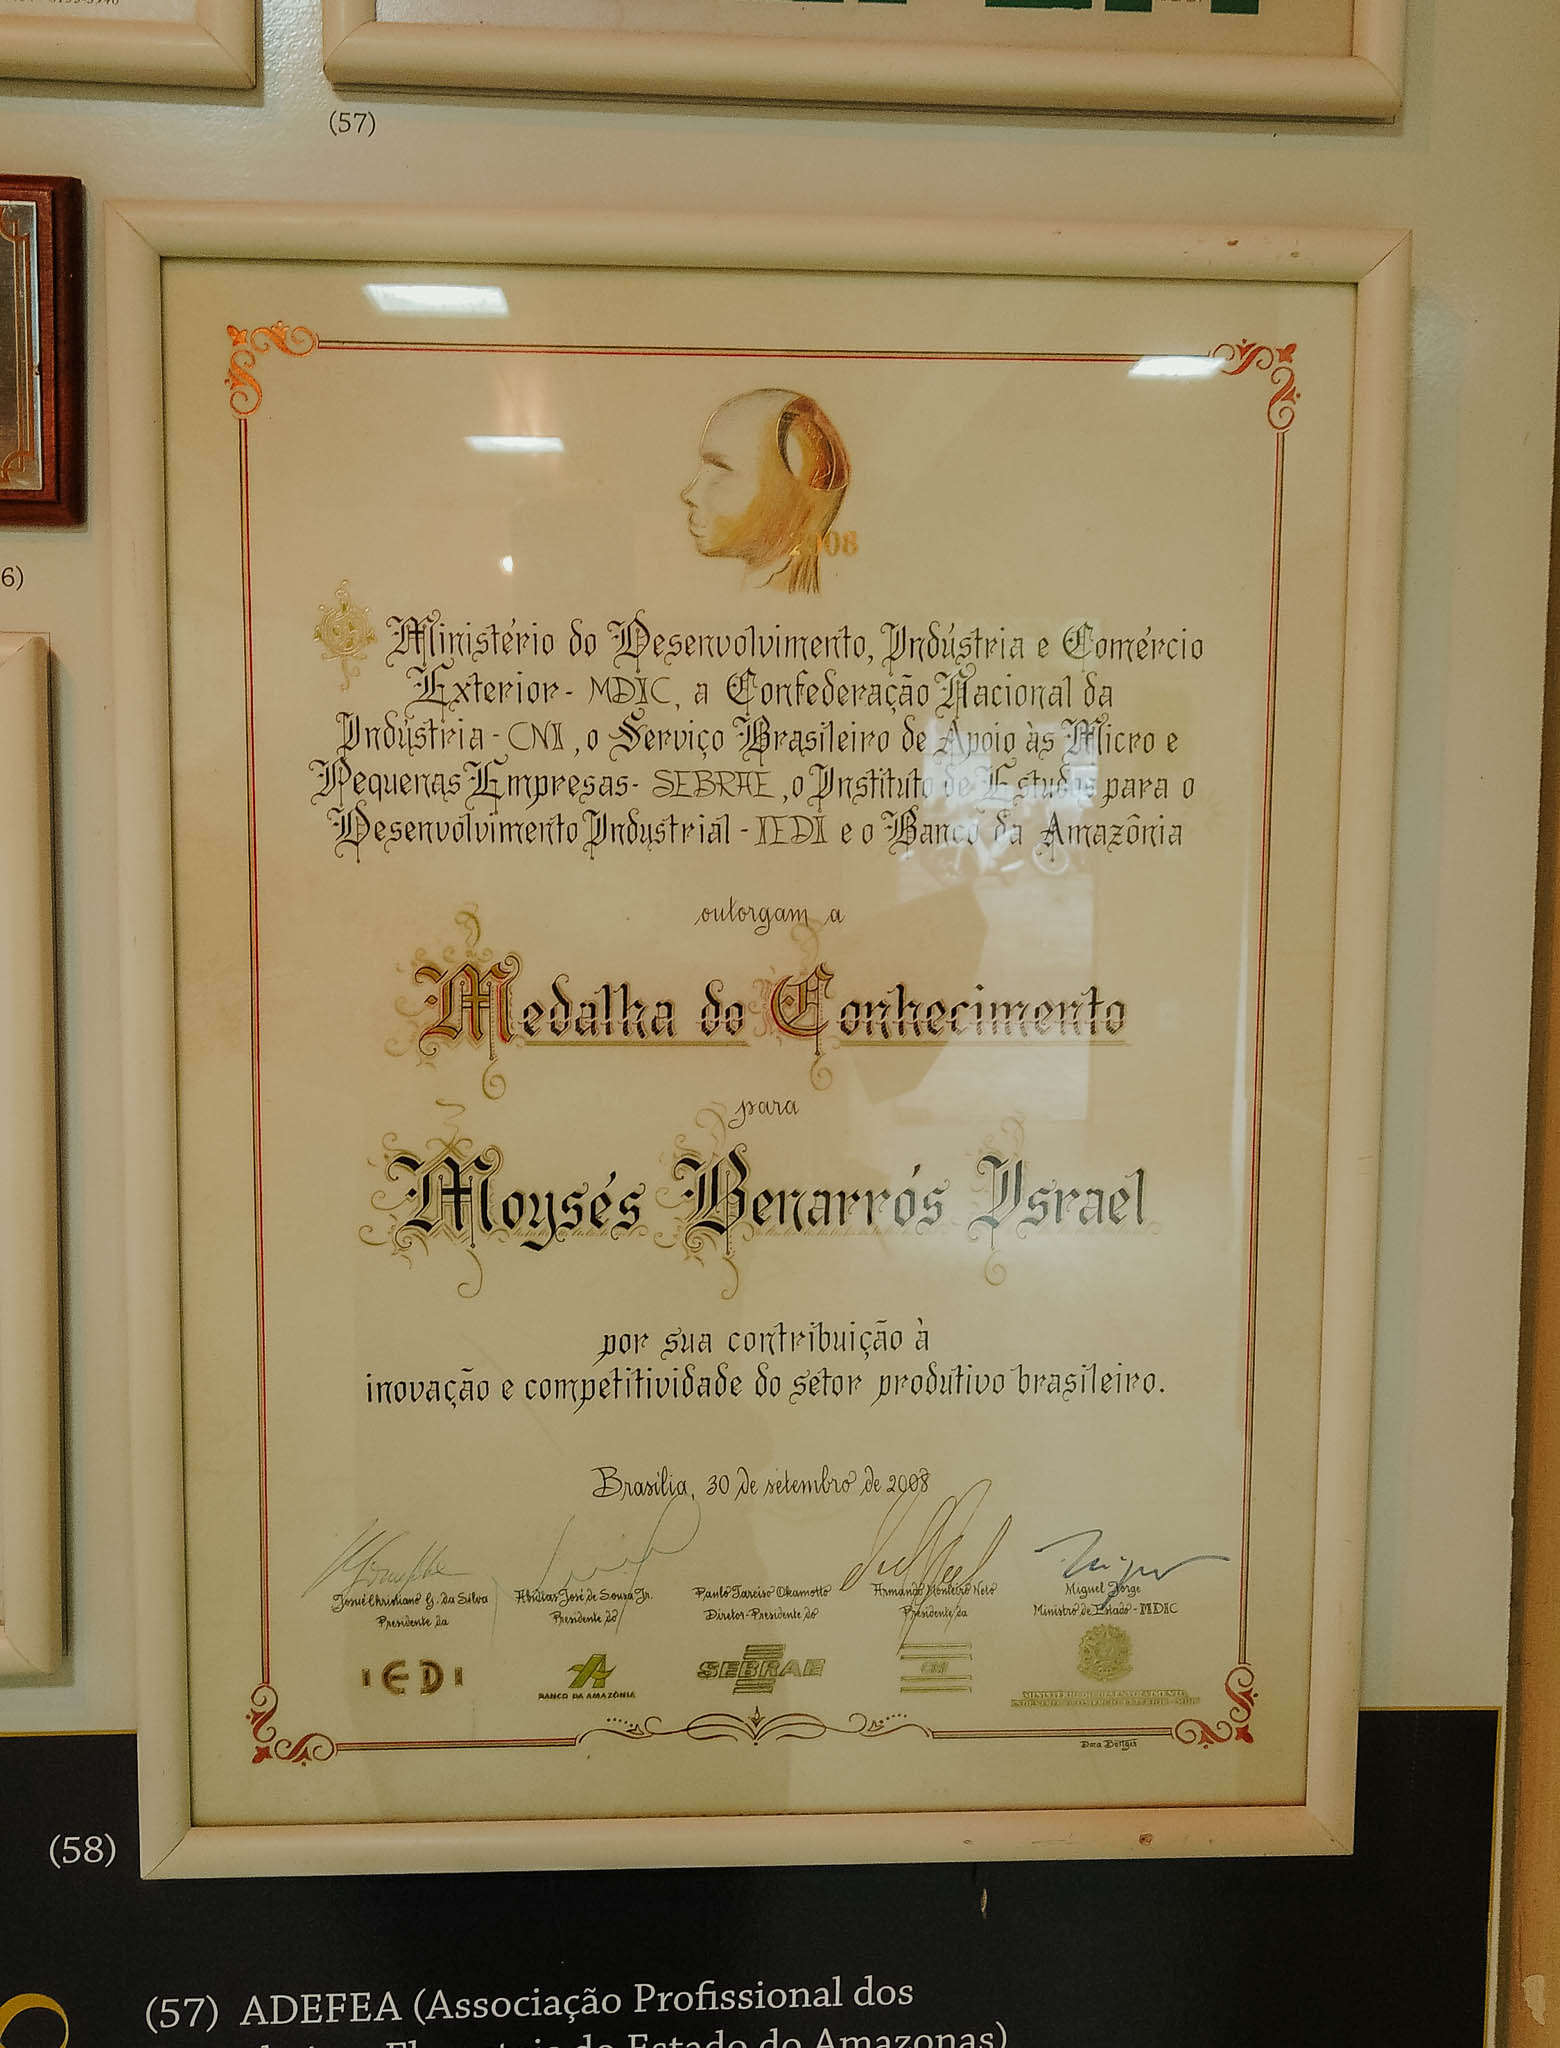 (57)
6)
2008
O Ministério do Desenvolvimento, Indústria e Comércio
Exterior - MDIC, a Confederação Nacional da
Indústria - CNI, o Serviço Brasileiro de Apoio às Micro e
Pequenas Empresas - SEBRAE, o Instituto de Estudos para o
Desenvolvimento Industrial - IEDI e o Banco da Amazônia
outorgam a
Medalha do Conhecimento
para
Moysés Benarrós Israel
por sua contribuição à
inovação e competitividade do setor produtivo brasileiro.
Brasília, 30 de setembro de 2008
Josué Christiano G. da Silva
Presidente da
IEDI
Abidias José de Sousa Jr.
Presidente do
BANCO DA AMAZÔNIA
Paulo Tarciso Okamotto
Diretor-Presidente do
SEBRAE
Armando Monteiro Neto
Presidente da
CNI
Miguel Jorge
Ministro de Estado - MDIC
MINISTÉRIO DO DESENVOLVIMENTO
INDÚSTRIA E COMÉRCIO EXTERIOR - MDIC
(58)
(57) ADEFEA (Associação Profissional dos
do Estado do Amazonas)